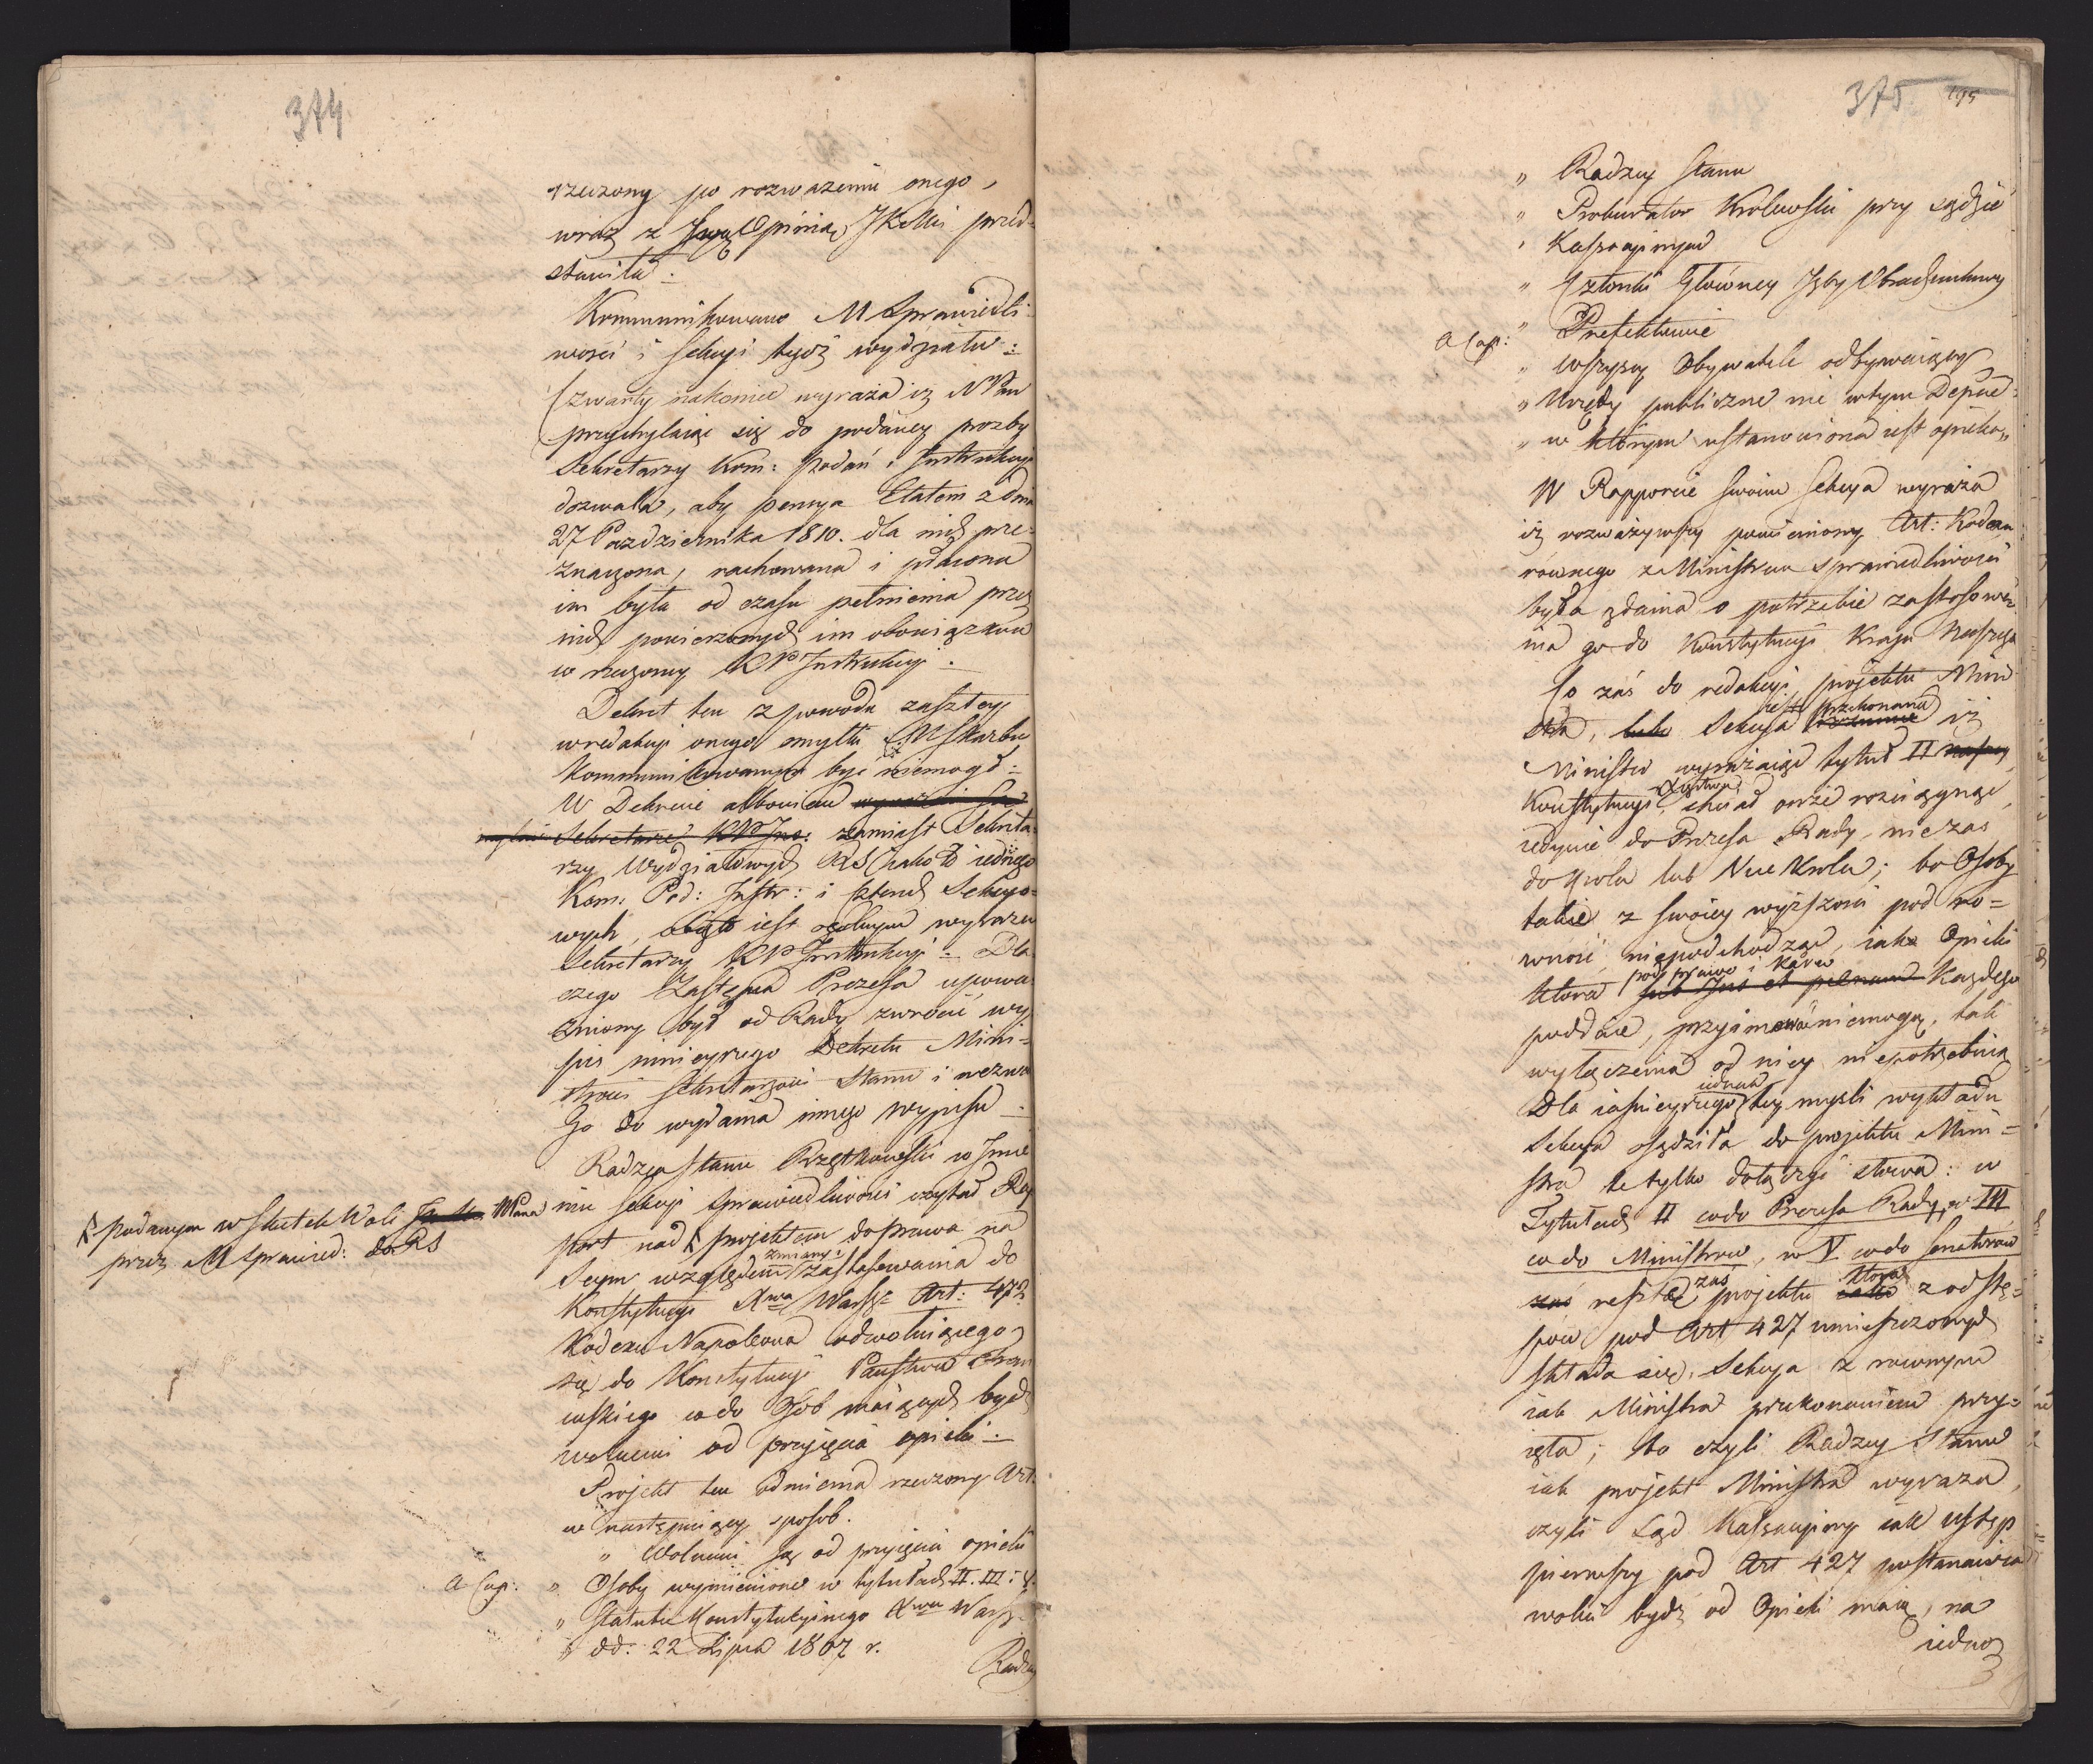 374
rzeczony po rozważeniu onego,
wraz z Swą Opinią JKMci przed=
stawiła.
Kommunikowano M Sprawiedli=
wości i Sekcyi tegoż wydziału:
Czwarty nakoniec wyraża iż NPan
przychylaiąc się do podaney prozby
Sekretarzy Kom: Podań i Instrukcyi
dozwala, aby pensya Etatem z dnia
27 Pazdziernika 1810. dla nich prze=
znaczona, rachowana i płacona
im była od czasu pełnienia przez
nich powierzonych im obowiązków
w rzeczoney KP Instrukcyi.
Dekret ten z powodu zaszłey
w redakcyi onego myłki M Skarbu
kommunikowanym być niemogł:
W Dekrecie albowiem
Sekretarze KPIns: zamiast Sekreta=
rzy Wydziałowych RS jako to iednego
Kom: Pod: Instr: i Sekcyo=
wych, iest ogolnym wyrazem
Sekretarzy KP Instrukcyi: Dla
czego Zastępca Prezesa upowa=
zniony był od Rady zwrocić wy=
pis ninieyszego Dekretu Mini=
strowi Sekretarzowi Stanu i wezwać
Go do wydania innego wypisu.
Radzca Stanu Rzętkowski w Imie=
niu Sekcyi Sprawiedliwości czytał Rap=
port nad projektem do prawa na
podanym w skutek Woli NPana
przez M Sprawied: do RS
Seym względem zmiany i zastosowania do
Konstytucyi Xwa Warsz: Art: 427
Kodexu Napoleona odwołuiącego
się do Konstytucyi Państwa Fran
cuskiego co do Osob maiących bydź
wolnemi od przyięcia opieki.
Projekt ten odmienia rzeczony Art.
w następuiący sposob.
„ Wolnemi są od przyięcia opieki
a Cap: „ Osoby wymienione w tytułach II. III i V.
„ Statutu Konstytucyinego Xwa Warsz:
„ dd: 22 Lipca 1807 r.
Radzcy
375 195
„ Radzcy Stanu
„ Prokurator Krolewski przy sądzie
„ Kassacyinym
„ Członki Główney Izby Obrachunkowey
„ Prefektowie
a Cap: „ Wszyscy Obywatele odbywaiący
„ Urzędy publiczne nie w tym Depar=
„ w którym ustanowiona iest opieka„
W Rapporcie swoim Sekcya wyraża
iż rozważywszy pomieniony Art: Kodexu
równego z Ministrem Sprawiedliwości
była zdania o potrzebie zastosowa=
nia go do Konstytucyi Kraju Naszego
Co zaś do redakcyi projektu Mini
stra, Sekcya iest przekonana iż
Minister wyrażaiąc tytuł II
Konstytucyi Xięstwa, chciał onże rozciągnąć
iedynie do Prezesa Rady, nie zaś
do Krola lub Vice Krola; bo Osoby
takie z swoiey wyższości pod ro=
wność niepodchodząc, iako Opieki
ktora pod prawo i karę każdego
poddaie, przyimować niemogą, tak
wyłączenia od niey niepotrzebuią
Dla iaśnieyszego iednak tey mysli wykładu
Sekcya osądziła do projektu Mini=
stra te tylko dołączyć słowa: w
Tytułach II co do Prezesa Rady, w III
co do Ministrow, w V co do Senatorow
resztę zaś projektu ktora z odstę=
pow pod Art 427 umieszczonych
składa się, Sekcya z rownym
iak Ministra przekonaniem przy=
ięła; bo czyli Radzcy Stanu
iak projekt Ministra wyraża,
czyli Sąd Kassacyiny iak ustęp
pierwszy pod Art 427 postanawia
wolni bydź od Opieki maią, na
iedno